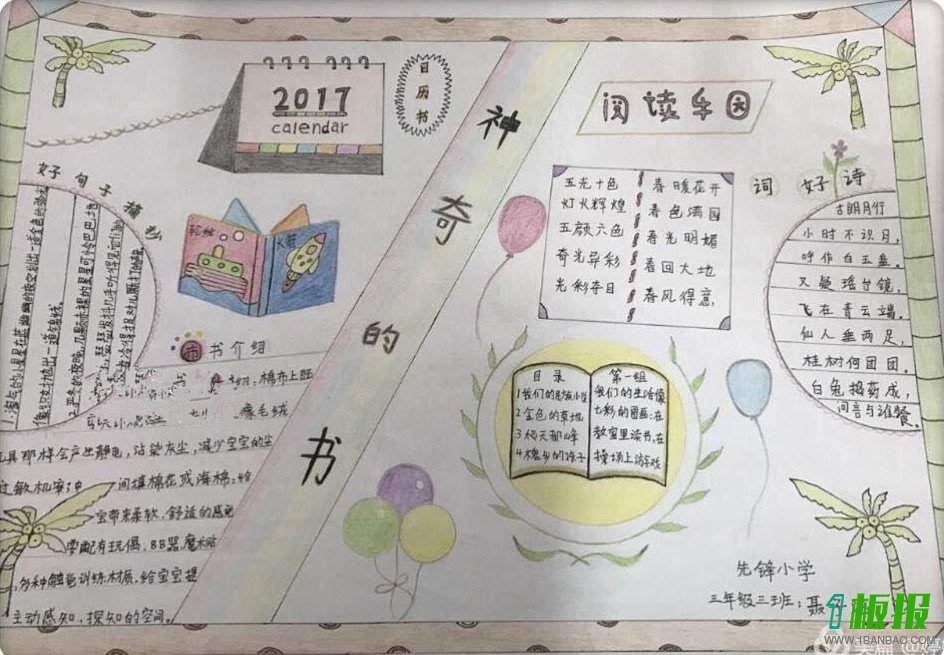 2017
calendar
日历书
神奇的书
阅读乐园
好句子摘抄
书介绍
棉布上既
像毛绒
具那样会产生静电,沾染灰尘,减少宝宝的尘
过敏机率;中
间填棉花或海棉;给
宝带来柔软,舒适的感觉
零配有玩偶、BB器、魔术贴
各种触觉训练材质,给宝宝提
主动感知、探知的空间。
五光十色
灯火辉煌
五颜六色
奇光异彩
光彩夺目
春暖花开
春色满园
春光明媚
春回大地
春风得意
词 好诗
古朗月行
小时不识月,
呼作白玉盘。
又疑瑶台镜,
飞在青云端。
仙人垂两足,
桂树何团团。
白兔捣药成,
问言与谁餐。
目录
1我们的民族小学
2金色的草地
3爬天都峰
4槐乡的孩子
第一组
我们的生活像
七彩的图画:在
教室里读书,在
操场上游戏
先锋小学
三年级三班:聂
1板报
WWW.1BANBAO.COM
美篇